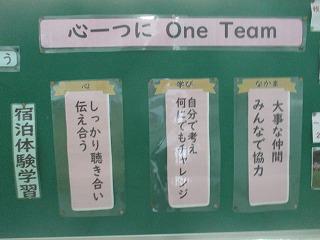 心一つに One Team
う
宿泊体験学習
心
しっかり聴き合い
伝え合う
学び
自分で考え
何にでもチャレンジ
なかま
大事な仲間
みんなで協力